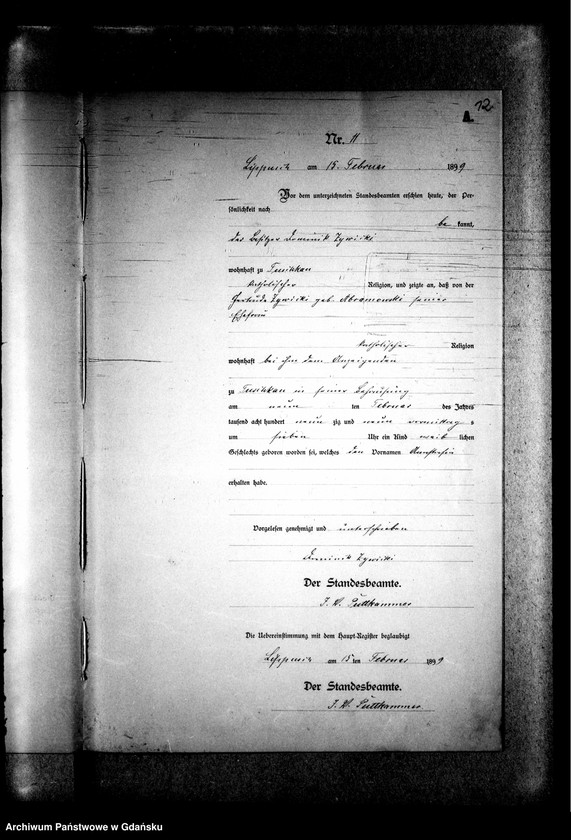 12
A.
Nr. 11
am 15. Februar 1899
Vor dem unterzeichneten Standesbeamten erschien heute, der Per-
sönlichkeit nach
be kannt,
der Besitzer Dominik Zywicki
wohnhaft zu Tuschkau
katholischer Religion, und zeigte an, daß von der
Gertrude Zywicki geb. Abramowski seiner
Ehefrau
katholischer Religion
wohnhaft bei ihm dem Anzeigenden
zu Tuschkau in seiner Behausung
am neun ten Februar des Jahres
tausend acht hundert neun zig und neun vormittags
um sieben Uhr ein Kind weib lichen
Geschlechts geboren worden sei, welches den Vornamen
erhalten habe.
Vorgelesen genehmigt und unterschrieben
Dominik Zywicki
Der Standesbeamte.
J. V. Puttkammer
Die Uebereinstimmung mit dem Haupt-Register beglaubigt
am 15 ten Februar 1899
Der Standesbeamte.
J. V. Puttkammer
Archiwum Państwowe w Gdańsku